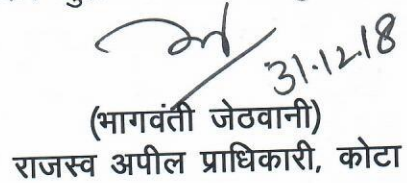 31.12.18
(भागवंती जेठवानी)
राजस्व अपील प्राधिकारी, कोटा